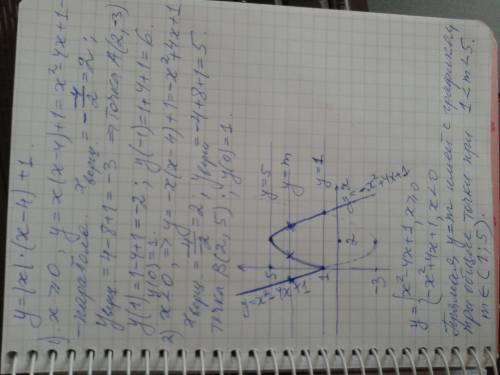 y=|x|·(x-4)+1.
1) x≥0, y=x(x-4)+1=x²-4x+1-
-парабола. Xверш=-(-4)/2=2;
Yверш=4-8+1=-3 ⇒ точка A(2,-3)
y(1)=1-4+1=-2; y(-1)=1+4+1=6.
y(0)=1.
2) x<0, ⇒ y=-x(x-4)+1=-x²+4x+1
Xверш=-4/-2=2, Yверш=-4+8+1=5.
точка B(2,5); y(0)=1.
y=5
y=m
y=1
x
5
1
2
-3
y={x²-4x+1, x≥0
-x²+4x+1, x<0
Прямая y=m имеет с графиком
три общие точки при 1<m<5.
m∈(1;5).